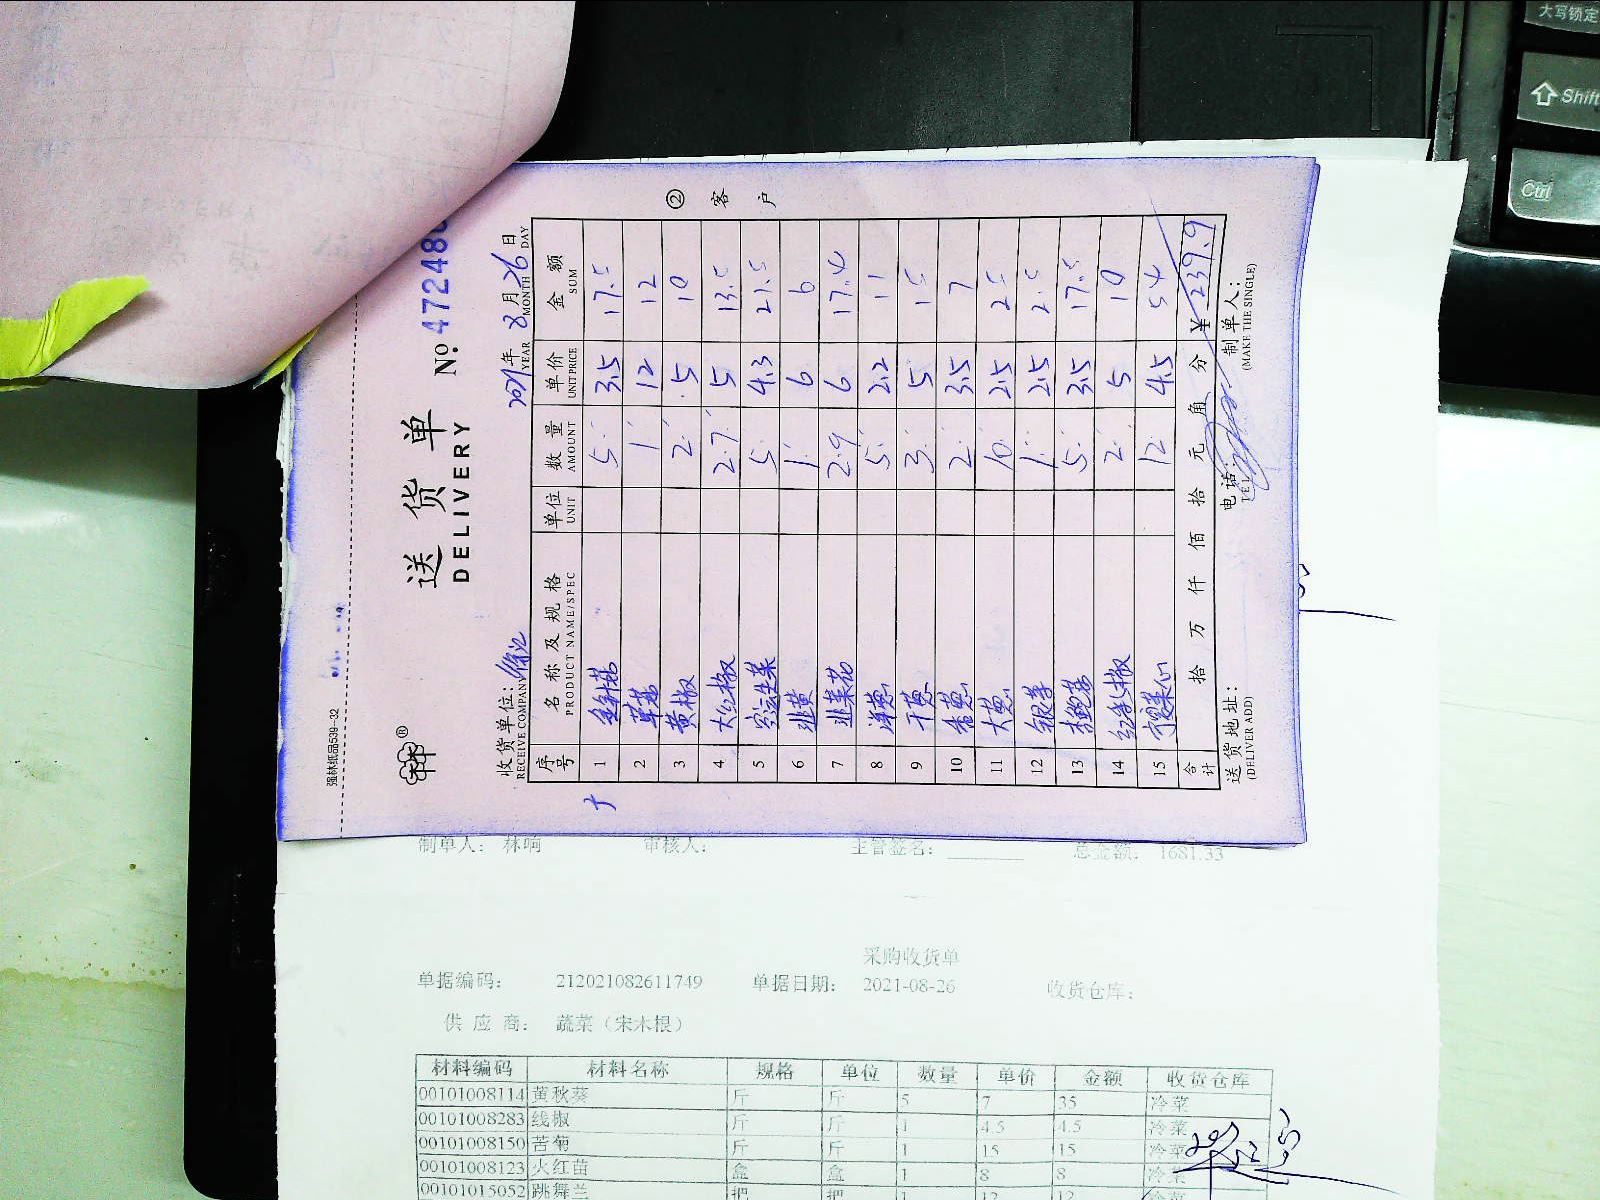 大写锁定
Shift
Ctrl
强林纸品539-32
② 客户
送货单
DELIVERY
No. 472248
收货单位:
RECEIVE COMPANY
2021年 8月26日
YEAR MONTH DAY
序号 名称及规格 单位 数量 单价 金额
PRODUCT NAME/SPEC UNIT AMOUNT UNIT PRICE SUM
1 5 3.5 17.5
2 草菇 1 12 12
3 黄椒 2 5 10
4 大红椒 2.7 5 13.5
5 5 4.3 21.5
6 韭黄 1 6 6
7 韭菜花 2.9 6 17.4
8 洋葱 5 2.2 11
9 干葱 3 5 15
10 香葱 2 3.5 7
11 大葱 10 2.5 25
12 银芽 1 2.5 2.5
13 5 3.5 17.5
14 2 5 10
15 12 4.5 54
合计 拾 万 仟 佰 拾 元 角 分 ¥ 239.9
送货地址: 电话: 制单人:
(DELIVER ADD) TEL (MAKE THE SINGLE)
制单人: 林响 审核人: 主管签名: 总金额: 1681.33
采购收货单
单据编码: 212021082611749 单据日期: 2021-08-26 收货仓库:
供应商: 蔬菜(宋木根)
材料编码 材料名称 规格 单位 数量 单价 金额 收货仓库
00101008114 黄秋葵 斤 斤 5 7 35 冷菜
00101008283 线椒 斤 斤 1 4.5 4.5 冷菜
00101008150 苦菊 斤 斤 1 15 15 冷菜
00101008123 火红苗 盒 盒 1 8 8 冷菜
00101015052 跳舞兰 把 把 1 12 12 冷菜